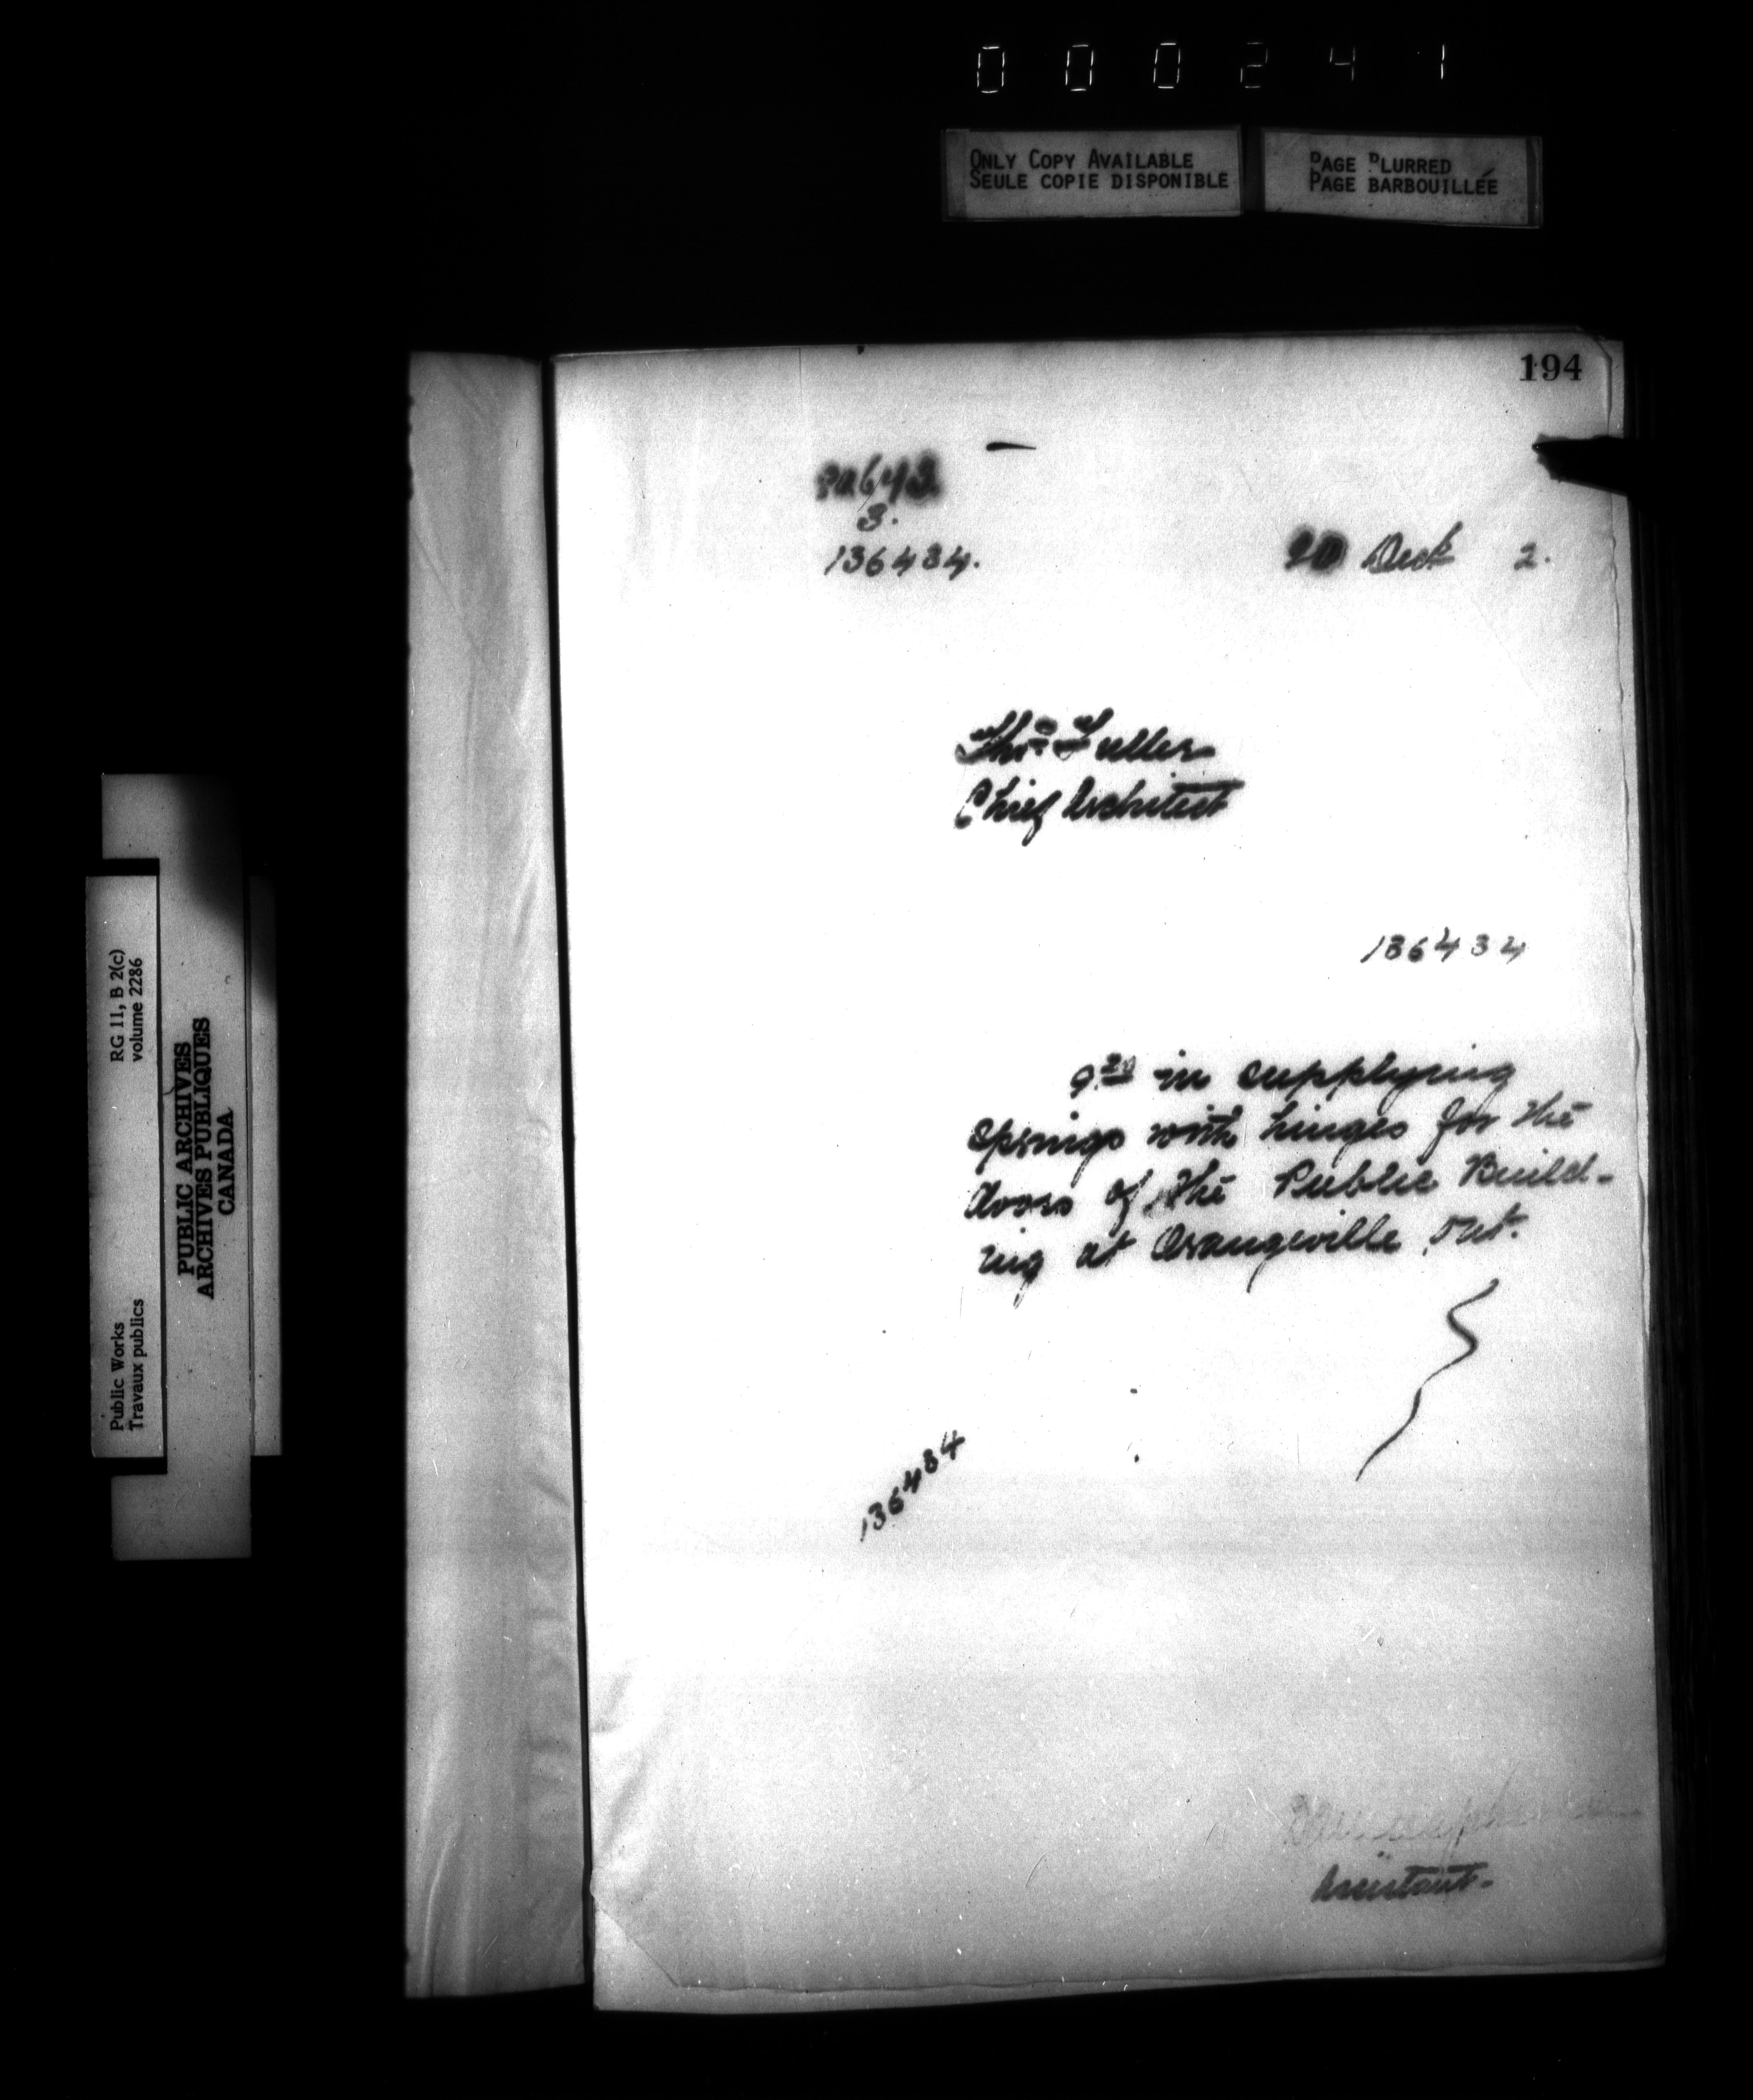 000241
ONLY COPY AVAILABLE
SEULE COPIE DISPONIBLE
PAGE BLURRED
PAGE BARBOUILLÉE
194
3.
136434.
Dec 2.
Thos Fuller
Chief Architect
136434
9.20 in supplying
springs with hinges for the
doors of the Public Build-
ing at Orangeville Ont.
136434
Assistant.
Public Works
Travaux publics
RG 11, B 2(c)
volume 2286
PUBLIC ARCHIVES
ARCHIVES PUBLIQUES
CANADA